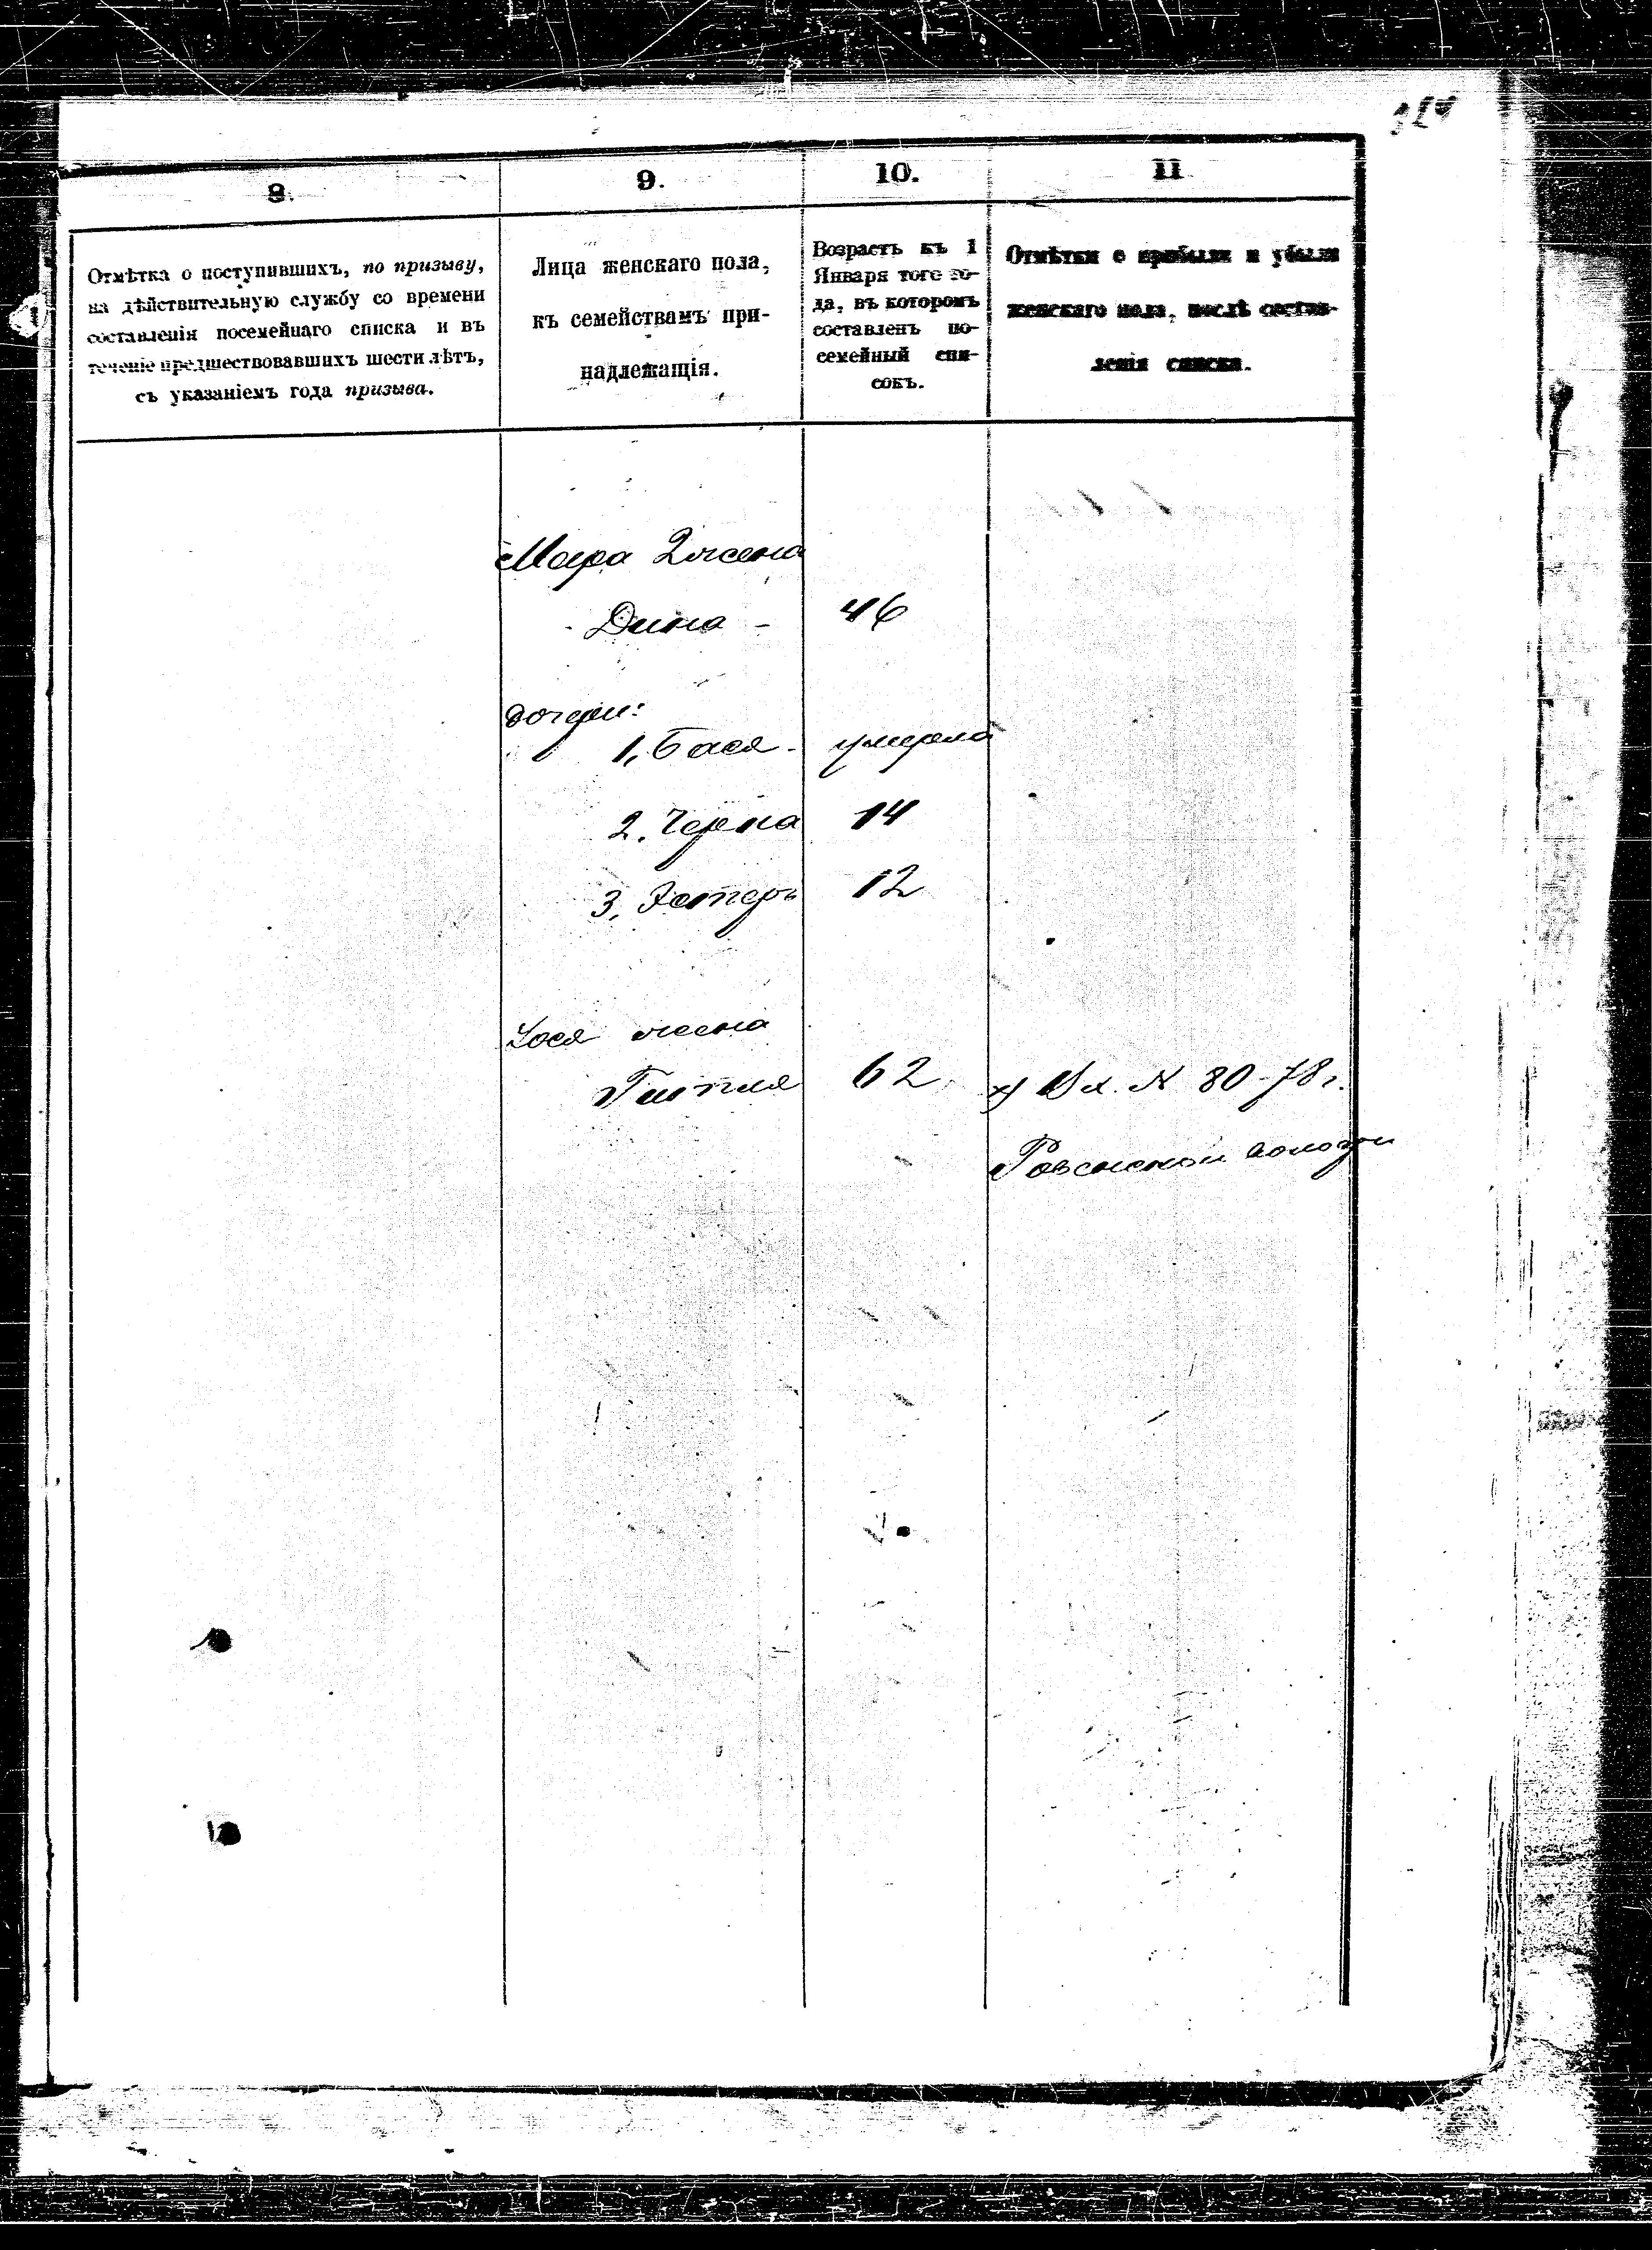 8.
9.
10.
11
Отмѣтка о поступившихъ, по призыву,
на дѣйствительную службу со времени
составленія посемейнаго списка и въ
теченіе предшествовавшихъ шести лѣтъ,
съ указаніемъ года призыва.
Лица женскаго пола,
къ семействамъ при-
надлежащія.
Возрастъ къ 1
Января того го-
да, въ которомъ
составленъ по-
семейный спи-
сокъ.
Отмѣтки о прибыли и убыли
женскаго пола, послѣ состав-
ленія списка.
жена
Дина - 46
дочери:
1, Бася - умерла
2, Черна 14
3, Эстеръ 12
жена
Гитля 62 х) № 80-78 г.
Ровенской